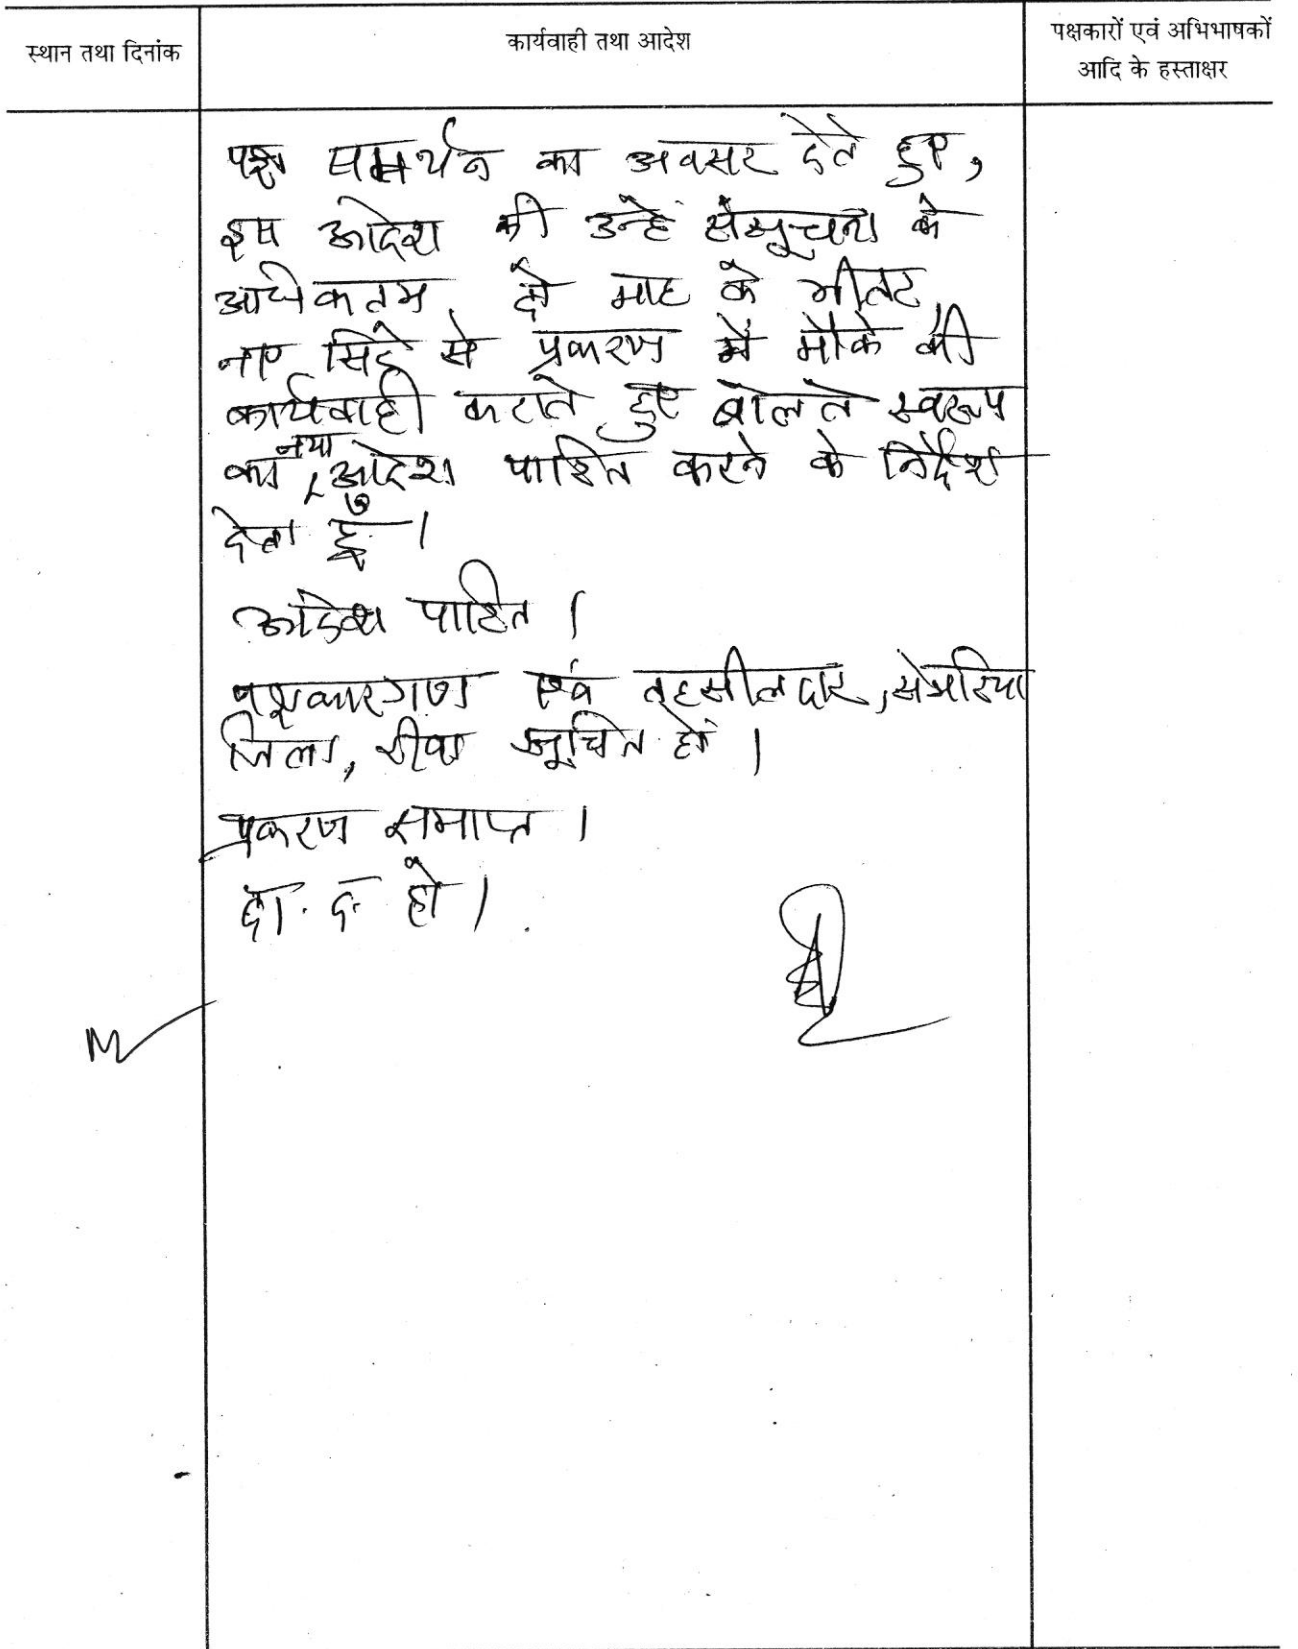 स्थान तथा दिनांक
कार्यवाही तथा आदेश
पक्षकारों एवं अभिभाषकों
आदि के हस्ताक्षर
पक्ष समर्थन का अवसर देते हुए,
इस आदेश की उन्हें संसूचना के
अधिकतम दो माह के भीतर
नए सिरे से प्रकरण में मौके की
कार्यवाही कराते हुए बोलते स्वरूप
का नया आदेश पारित करने के निर्देश
देता हूँ।
आदेश पारित।
पक्षकारगण एवं तहसीलदार, सेमरिया
जिला, रीवा सूचित हों।
प्रकरण समाप्त।
दा. द. हो।